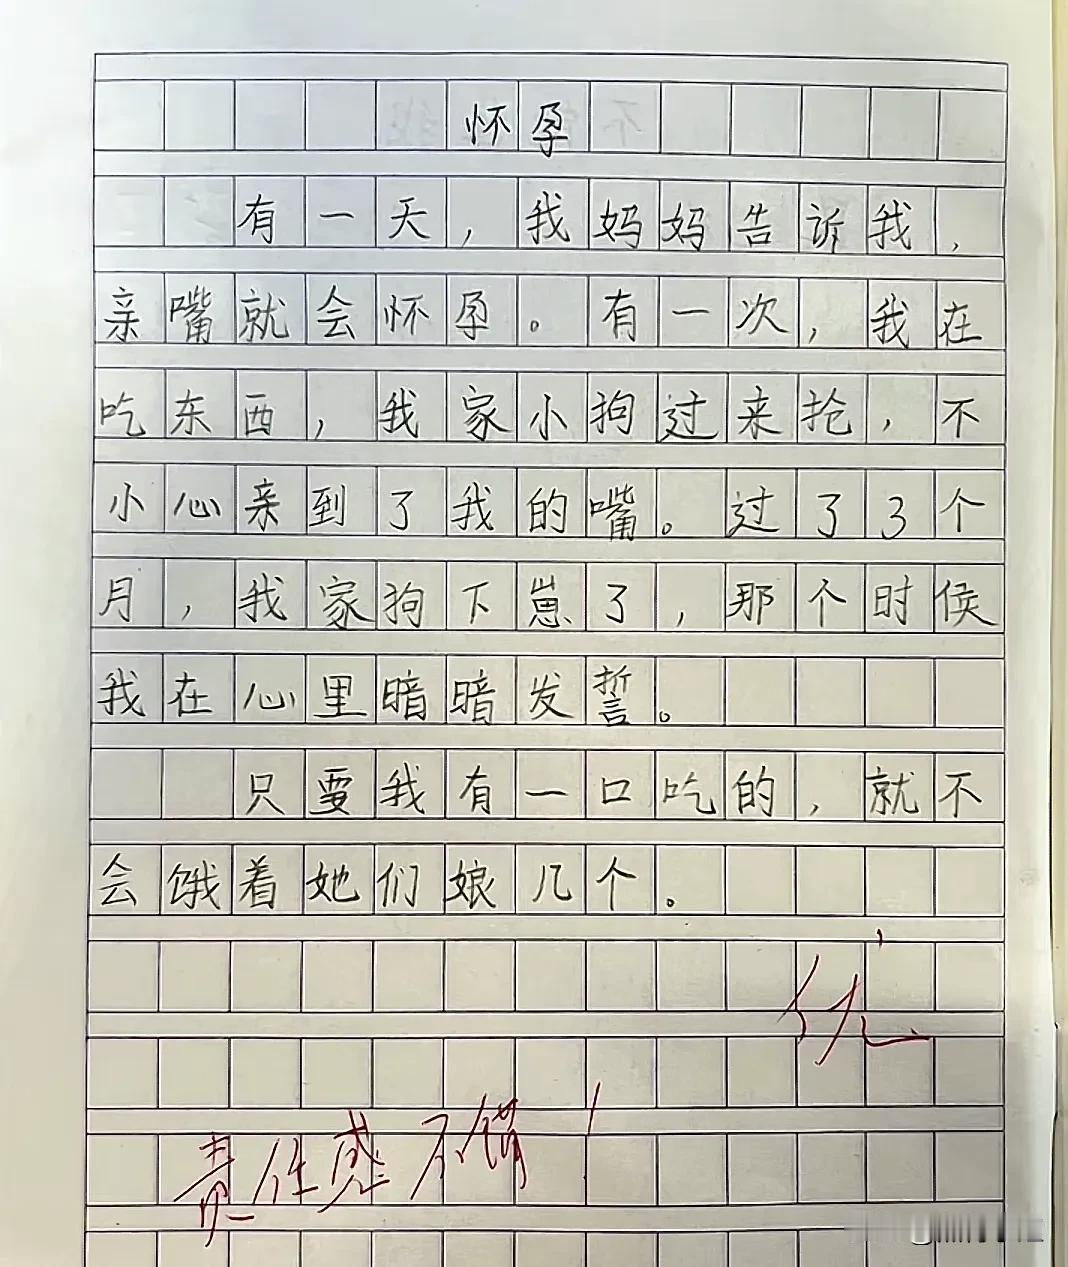 怀孕
有一天，我妈妈告诉我，
亲嘴就会怀孕。有一次，我在
吃东西，我家小狗过来抢，不
小心亲到了我的嘴。过了3个
月，我家狗下崽了，那个时候
我在心里暗暗发誓。
只要我有一口吃的，就不
会饿着她们娘几个。
优
责任感不错！